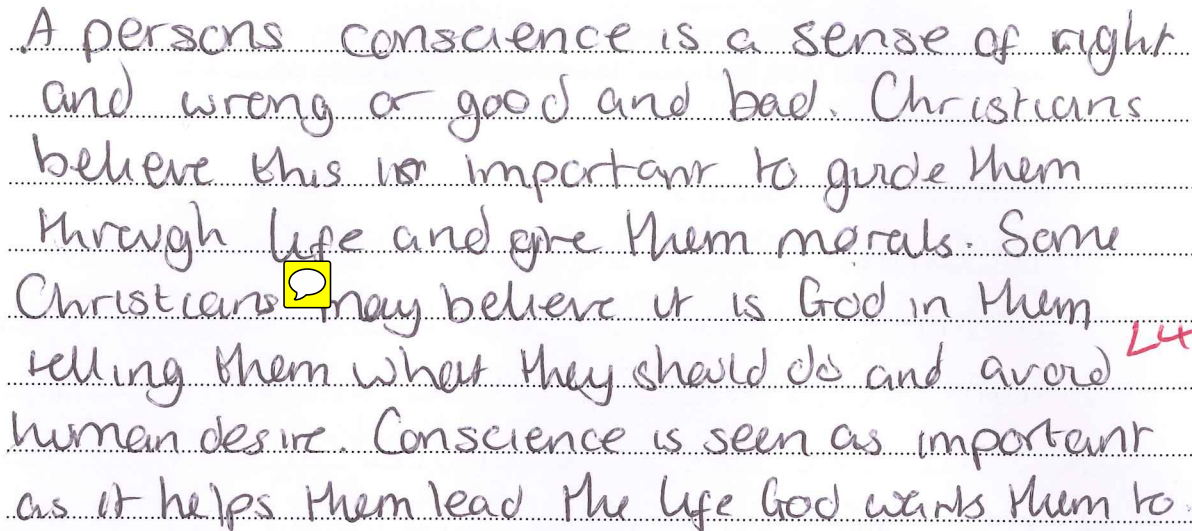 A persons conscience is a sense of right
and wrong or good and bad. Christians
believe this is important to guide them
through life and give them morals. Some
Christians may believe it is God in them
telling them what they should do and avoid
L4
human desire. Conscience is seen as important
as it helps them lead the life God wants them to.